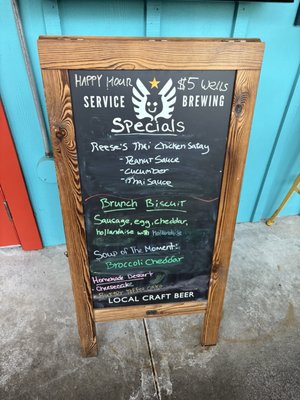 Happy Hour $5 Wells
SERVICE BREWING
Specials
Reese's Thai Chicken Satay
- Peanut Sauce
- Cucumber
- Thai Sauce
Brunch Biscuit
Sausage, egg, cheddar,
hollandaise with Hollandaise
Soup of the Moment:
Broccoli Cheddar
Homemade Dessert
- Cheesecake
LOCAL CRAFT BEER